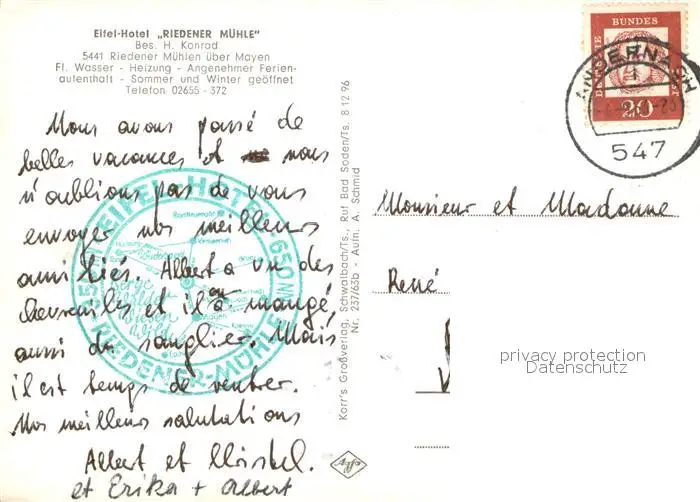 Eifel-Hotel „RIEDENER MÜHLE"
Bes. H. Konrad
5441 Riedener Mühlen über Mayen
Fl. Wasser - Heizung - Angenehmer Ferien-
aufenthalt - Sommer und Winter geöffnet
Telefon 02655 - 372
Nous avons passé de
belles vacances et nous
n'oublions pas de vous
envoyer nos meilleurs
amitiés. Albert a vu des
chevreuils et il a mangé,
aussi du sanglier. Mais
il est temps de rentrer.
Nos meilleurs salutations
Albert et Christel.
et Erika + Albert
EIFEL-HOTEL
650 M
RIEDENER-MÜHLE
Korr's Großverlag, Schwalbach/Ts., Ruf Bad Soden/Ts. 8 12 96
Nr. 237/63b - Aufn. A. Schmid
Agfa
DEUTSCHE BUNDES
20
ANDERNACH
547
Monsieur et Madame
René
privacy protection
Datenschutz